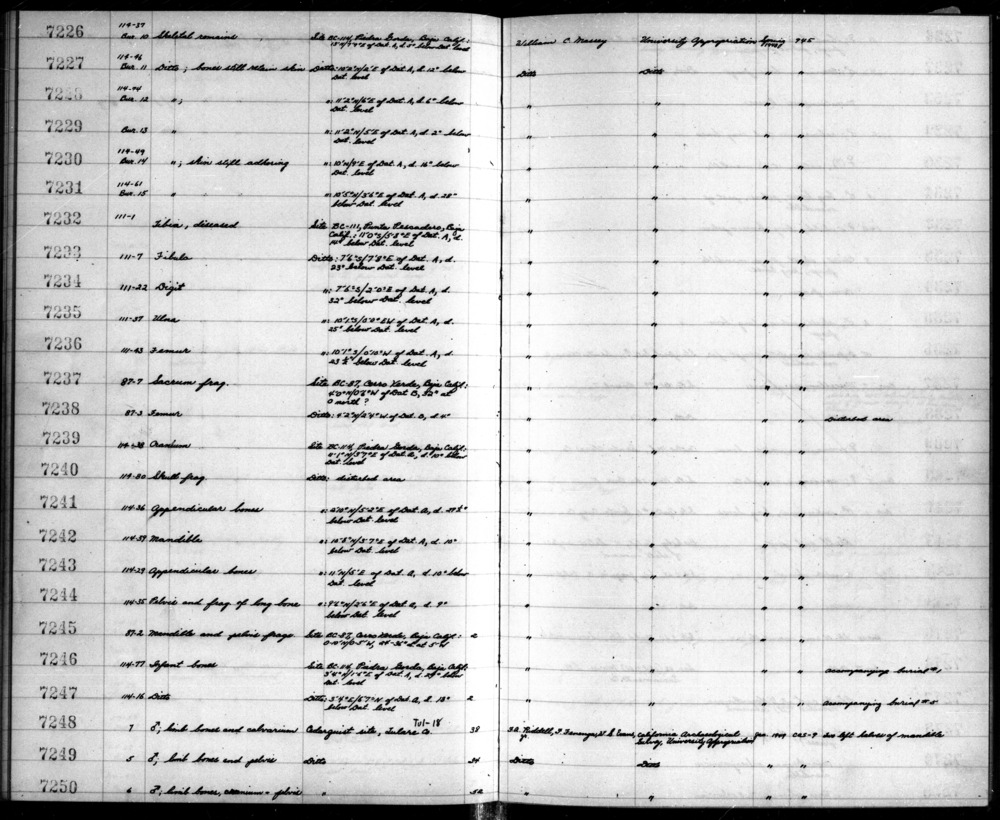 7226 114-37 Bur. 10 Skeletal remains Site BC-114, Piedra Gorda, Baja Calif.: of Dat. A, d. below Dat. level William C. Massey University Appropriation 745
7227 114-46 Bur. 11 Ditto; bones still retain skin Ditto: of Dat. A, d. 12" below Dat. level Ditto Ditto " "
7228 114-44 Bur. 12 "; ": 11'2"N/6'E of Dat. A, d. 6" below Dat. level " " " "
7229 Bur. 13 " ": 11'2"N/5'E of Dat. A, d. 2" below Dat. level " " " "
7230 114-49 Bur. 14 "; skin still adhering ": 10'N/9'E of Dat. A, d. 16" below Dat. level " " " "
7231 114-61 Bur. 15 " ": 10'5"N/3'6"E of Dat. A, d. 28" below Dat. level " " " "
7232 111-1 Tibia, diseased Site BC-111, Punta Pescadero, Baja Calif.: 11'0"S/5'3"E of Dat. A, d. 14" below Dat. level " " " "
7233 111-7 Fibula Ditto: 7'6"S/7'8"E of Dat. A, d. 23" below Dat. level " " " "
7234 111-22 Digit ": 7'6"S/2'0"E of Dat. A, d. 32" below Dat. level " " " "
7235 111-37 Ulna ": of Dat. A, d. 25" below Dat. level " " " "
7236 111-43 Femur ": 10'1"S/0'10"W of Dat. A, d. 23½" below Dat. level " " " "
7237 87-7 Sacrum frag. Site BC-87, Cerro Verde, Baja Calif.: 4'0"N/0'6"W of Dat. B, 32" at 0 north? " " " "
7238 87-3 Femur Ditto: 4'2"N/2'4"W of Dat. B, d. 4" " " " " Disturbed area
7239 114-38 Cranium Site BC-114, Piedra Gorda, Baja Calif.: 11'1"N/3'7"E of Dat. A, d. 10" below Dat. level " " " "
7240 114-80 Skull frag. Ditto: disturbed area " " " "
7241 114-36 Appendicular bones ": 2'10"N/5'2"E of Dat. A, d. below Dat. level " " " "
7242 114-39 Mandible ": 10'5"N/3'7"E of Dat. A, d. 10" below Dat. level " " " "
7243 114-29 Appendicular bones ": 11'N/5'E of Dat. A, d. 10" below Dat. level " " " "
7244 114-35 Pelvis and frag of long bone ": 9'6"N/2'6"E of Dat. A, d. 9" below Dat. level " " " "
7245 87-2 Mandible and pelvis frags Site BC-87, Cerro Verde, Baja Calif.: 2 " " " "
7246 114-77 Infant bones Site BC-114, Piedra Gorda, Baja Calif.: 3'4"N/1'6"E of Dat. A, d. below Dat. level " " " " accompanying burial #1
7247 114-16 Ditto Ditto: 3'4"E/6'7"N of Dat. A, d. 18" below Dat. level 2 " " " " accompanying burial #5
7248 7 ♂; limb bones and calvarium Cedarquist site, Tulare Co. Tul-18 38 F.A. Riddell, F. Fenenga, W. S. Evans, California Archaeological Survey, University Appropriation 1949 CAS-9 See left halves of mandible
7249 5 ♂; limb bones and pelvis Ditto 34 Ditto Ditto " "
7250 6 ♂; limb bones, cranium + pelvis " 52 " " " "